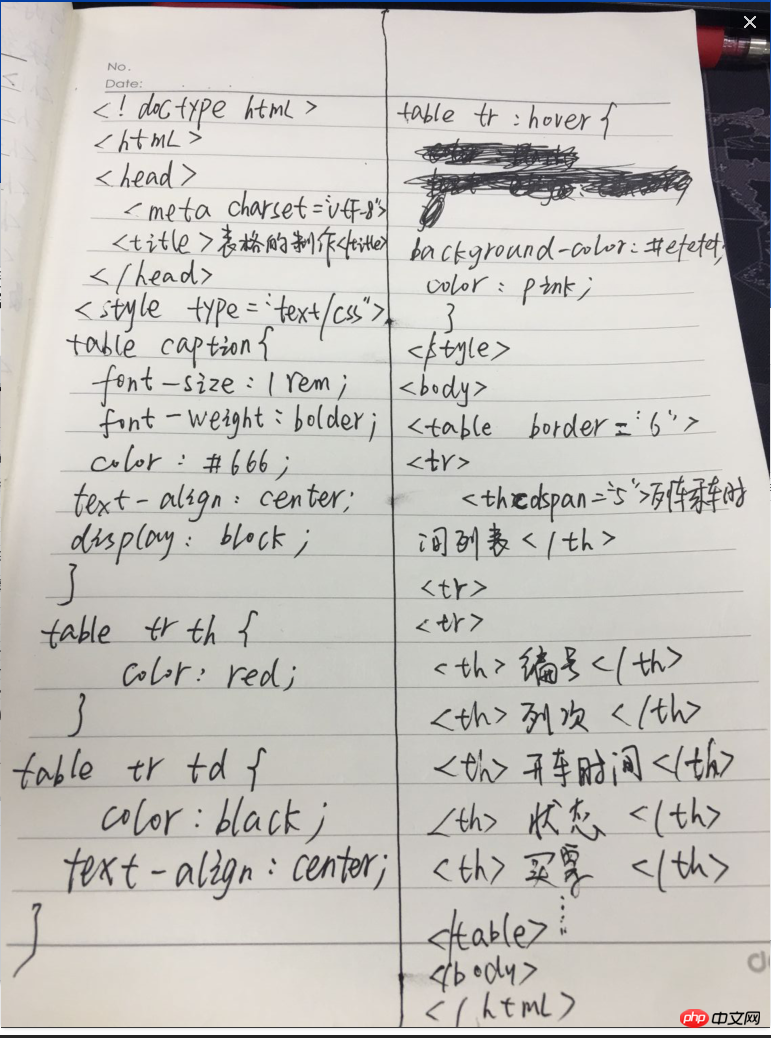 No.
Date:
<! doctype html>
<html>
<head>
<meta charset="utf-8">
<title>表格的制作</title>
</head>
<style type="text/css">
table caption{
font-size: 1rem;
font-weight: bolder;
color: #666;
text-align: center;
display: block;
}
table tr th {
color: red;
}
table tr td {
color: black;
text-align: center;
}
table tr :hover {
background-color: #efefef;
color: pink;
}
</style>
<body>
<table border="6">
<tr>
列车乘车时
间列表</th>
<tr>
<tr>
<th>编号</th>
<th>列次</th>
<th>开车时间</th>
<th>状态</th>
<th>买票</th>
</table>
</body>
</html>
php 中文网